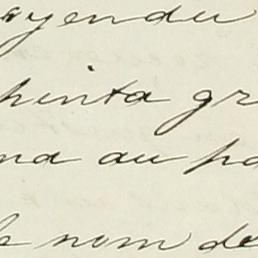 ayendu
pinta gr
na au pa
le nom de